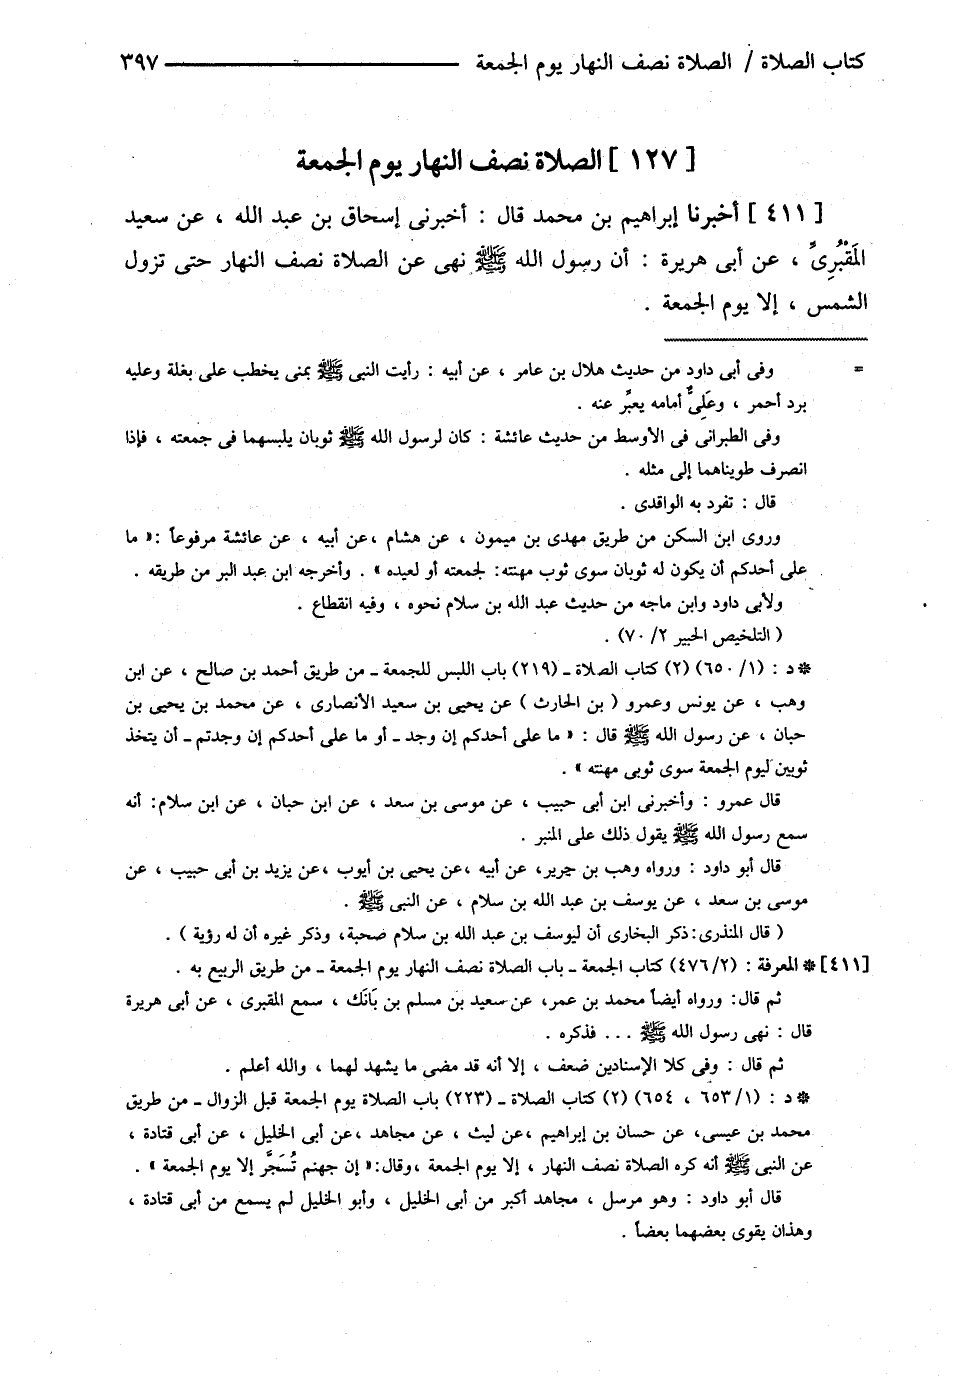 كتاب الصلاة / الصلاة نصف النهار يوم الجمعة ٣٩٧
[ ١٢٧ ] الصلاة نصف النهار يوم الجمعة
[ ٤١١ ] أخبرنا إبراهيم بن محمد قال : أخبرنى إسحاق بن عبد الله ، عن سعيد
المَقْبُرِىِّ ، عن أبى هريرة : أن رسول الله ﷺ نهى عن الصلاة نصف النهار حتى تزول
الشمس ، إلا يوم الجمعة .
= وفى أبى داود من حديث هلال بن عامر ، عن أبيه : رأيت النبى ﷺ بمنى يخطب على بغلة وعليه
برد أحمر ، وعَلِىٌّ أمامه يعبَّر عنه .
وفى الطبرانى فى الأوسط من حديث عائشة : كان لرسول الله ﷺ ثوبان يلبسهما فى جمعته ، فإذا
انصرف طويناهما إلى مثله .
قال : تفرد به الواقدى .
وروى ابن السكن من طريق مهدى بن ميمون ، عن هشام ،عن أبيه ، عن عائشة مرفوعاً :« ما
على أحدكم أن يكون له ثوبان سوى ثوب مهنته: لجمعته أو لعيده » . وأخرجه ابن عبد البر من طريقه .
ولأبى داود وابن ماجه من حديث عبد الله بن سلام نحوه ، وفيه انقطاع .
( التلخيص الحبير ٢/ ٧٠) .
* د : (١/ ٦٥٠) (٢) كتاب الصلاة ـ (٢١٩) باب اللبس للجمعة ـ من طريق أحمد بن صالح ، عن ابن
وهب ، عن يونس وعمرو ( بن الحارث ) عن يحيى بن سعيد الأنصارى ، عن محمد بن يحيى بن
حبان ، عن رسول الله ﷺ قال : « ما على أحدكم إن وجد ـ أو ما على أحدكم إن وجدتم ـ أن يتخذ
ثوبين ليوم الجمعة سوى ثوبى مهنته » .
قال عمرو : وأخبرنى ابن أبى حبيب ، عن موسى بن سعد ، عن ابن حبان ، عن ابن سلام: أنه
سمع رسول الله ﷺ يقول ذلك على المنبر .
قال أبو داود : ورواه وهب بن جرير، عن أبيه ،عن يحيى بن أيوب ،عن يزيد بن أبى حبيب ، عن
موسى بن سعد ، عن يوسف بن عبد الله بن سلام ، عن النبى ﷺ .
( قال المنذرى: ذكر البخارى أن ليوسف بن عبد الله بن سلام صحبة، وذكر غيره أن له رؤية ) .
[٤١١] * المعرفة : (٢/ ٤٧٦) كتاب الجمعة ـ باب الصلاة نصف النهار يوم الجمعة ـ من طريق الربيع به .
ثم قال: ورواه أيضاً محمد بن عمر، عن سعيد بن مسلم بن بَانَك ، سمع المقبرى ، عن أبى هريرة
قال : نهى رسول الله ﷺ ... فذكره .
ثم قال : وفى كلا الإسنادين ضعف ، إلا أنه قد مضى ما يشهد لهما ، والله أعلم .
* د : (١/ ٦٥٣ ، ٦٥٤) (٢) كتاب الصلاة ـ (٢٢٣) باب الصلاة يوم الجمعة قبل الزوال ـ من طريق
محمد بن عيسى، عن حسان بن إبراهيم ،عن ليث ، عن مجاهد ،عن أبى الخليل ، عن أبى قتادة ،
عن النبى ﷺ أنه كره الصلاة نصف النهار ، إلا يوم الجمعة ،وقال:« إن جهنم تُسَجَّر إلا يوم الجمعة » .
قال أبو داود : وهو مرسل ، مجاهد أكبر من أبى الخليل ، وأبو الخليل لم يسمع من أبى قتادة ،
وهذان يقوى بعضهما بعضاً .